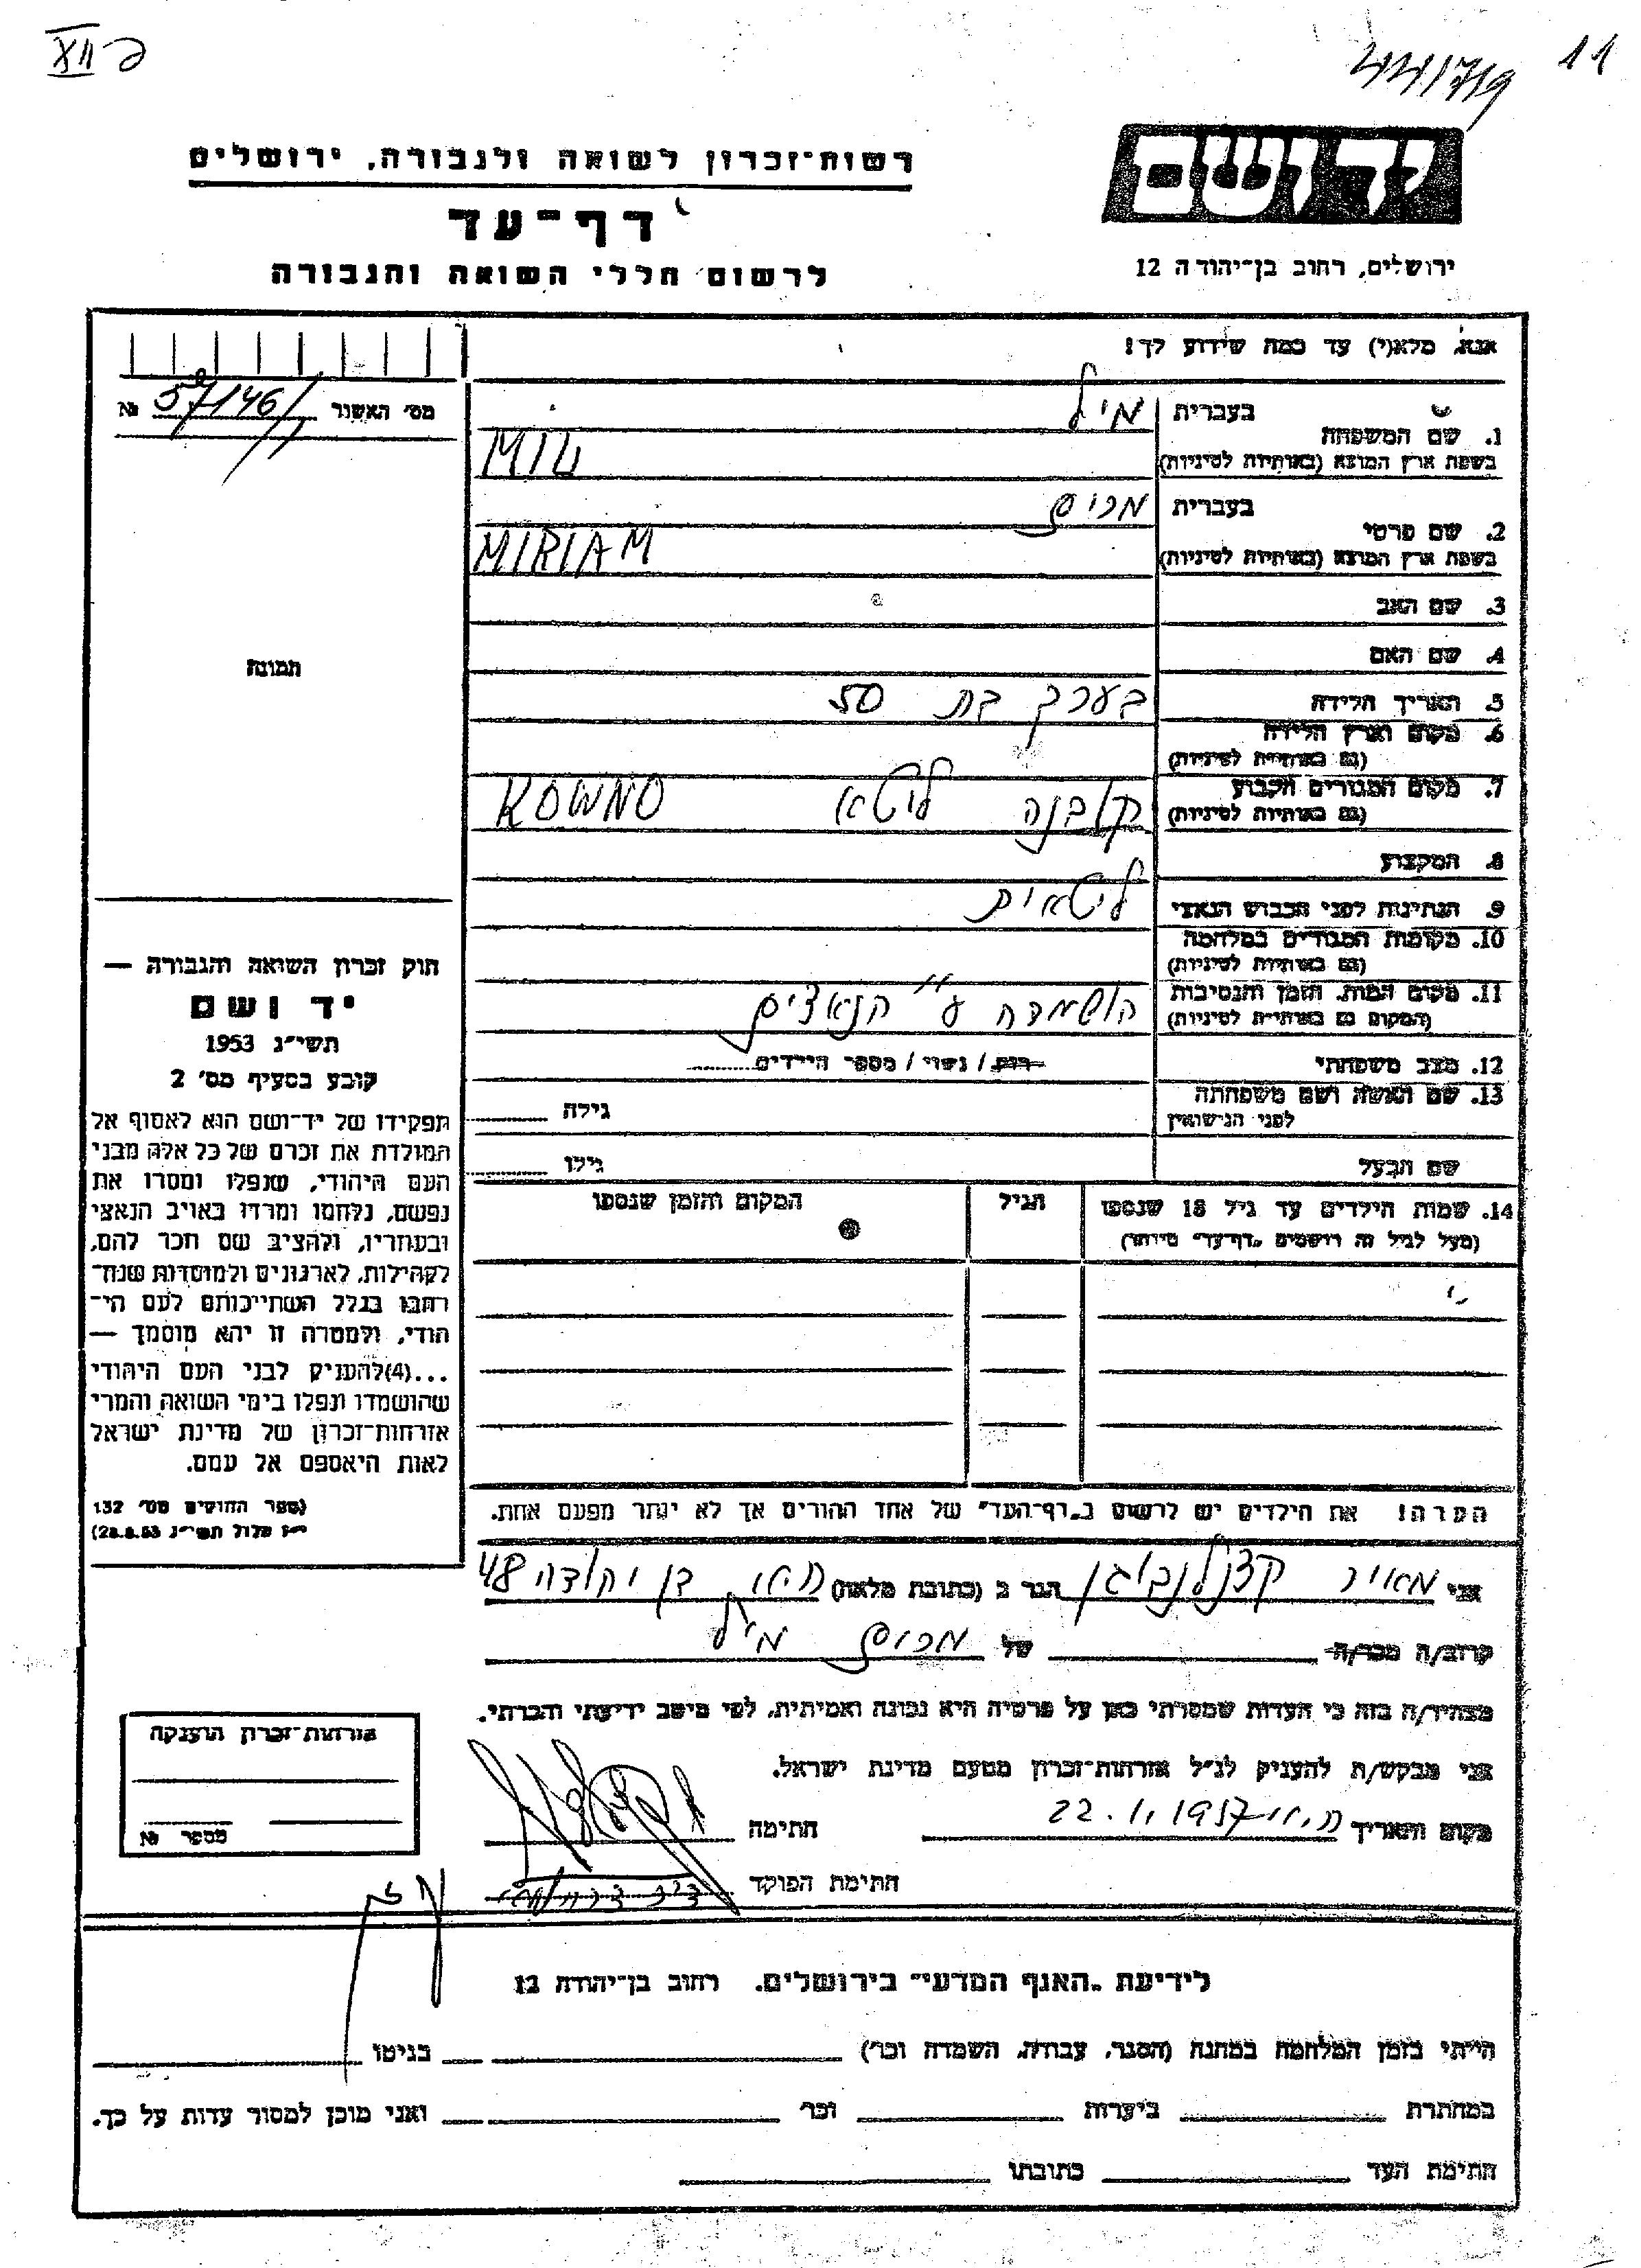 11
441719
XII
יד ושם
ירושלים, רחוב בן־יהודה 12
רשות־זכרון לשואה ולגבורה, ירושלים
דף־עד
לרשום חללי השואה והגבורה
אנא, מלא(י) עד כמה שידוע לך!
מס׳ האשור № 57146
1. שם המשפחה
בעברית מיל
בשפת ארץ המוצא (באותיות לטיניות) MIL
2. שם פרטי
בעברית מרים
בשפת ארץ המוצא (באותיות לטיניות) MIRIAM
3. שם האב
4. שם האם
5. תאריך הלידה בערך בת 50
6. מקום וארץ הלידה
(גם באותיות לטיניות)
7. מקום המגורים הקבוע קובנה ליטא KOWNO
(גם באותיות לטיניות)
8. המקצוע
9. הנתינות לפני הכבוש הנאצי ליטאית
10. מקומות המגורים במלחמה
(גם באותיות לטיניות)
11. מקום המות, הזמן והנסיבות הושמדה ע״י הנאצים
(המקום גם באותיות לטיניות)
12. מצב משפחתי רווק / נשוי / מספר הילדים
13. שם האשה ושם משפחתה
לפני הנישואין גילה
שם הבעל גילו
14. שמות הילדים עד גיל 18 שנספו הגיל המקום והזמן שנספו
(מעל לגיל זה רושמים „דף־עד״ מיוחד)
תמונה
חוק זכרון השואה והגבורה —
יד ושם
תשי״ג 1953
קובע בסעיף מס׳ 2
תפקידו של יד־ושם הוא לאסוף אל
המולדת את זכרם של כל אלה מבני
העם היהודי, שנפלו ומסרו את
נפשם, נלחמו ומרדו באויב הנאצי
ובעוזריו, ולהציב שם וזכר להם,
לקהילות, לארגונים ולמוסדות שנח־
רבו בגלל השתייכותם לעם הי־
הודי, ולמטרה זו יהא מוסמך —
...(4)להעניק לבני העם היהודי
שהושמדו ונפלו בימי השואה והמרי
אזרחות־זכרון של מדינת ישראל
לאות היאספם אל עמם.
(ספר החוקים מס׳ 132
י״ז אלול תשי״ג 28.8.53)
הערה! את הילדים יש לרשום ב„דף־העד״ של אחד ההורים אך לא יותר מפעם אחת.
אני מאיר קצנלנבוגן הגר ב (כתובת מלאה) חיפה, בן יהודה 48
קרוב/ה מכר/ה של מרים מיל
מצהיר/ה בזה כי העדות שמסרתי כאן על פרטיה היא נכונה ואמיתית, לפי מיטב ידיעתי והכרתי.
אני מבקש/ת להעניק לנ״ל אזרחות־זכרון מטעם מדינת ישראל.
מקום ותאריך 22.1.1957 חתימה
חתימת הפוקד
אזרחות־זכרון הוענקה
מספר №
לידיעת „האגף המדעי״ בירושלים. רחוב בן־יהודה 12
הייתי בזמן המלחמה במחנה (הסגר, עבודה, השמדה וכו׳) בגיטו
במחתרת ביערות וכו׳ ואני מוכן למסור עדות על כך.
חתימת העד כתובתו